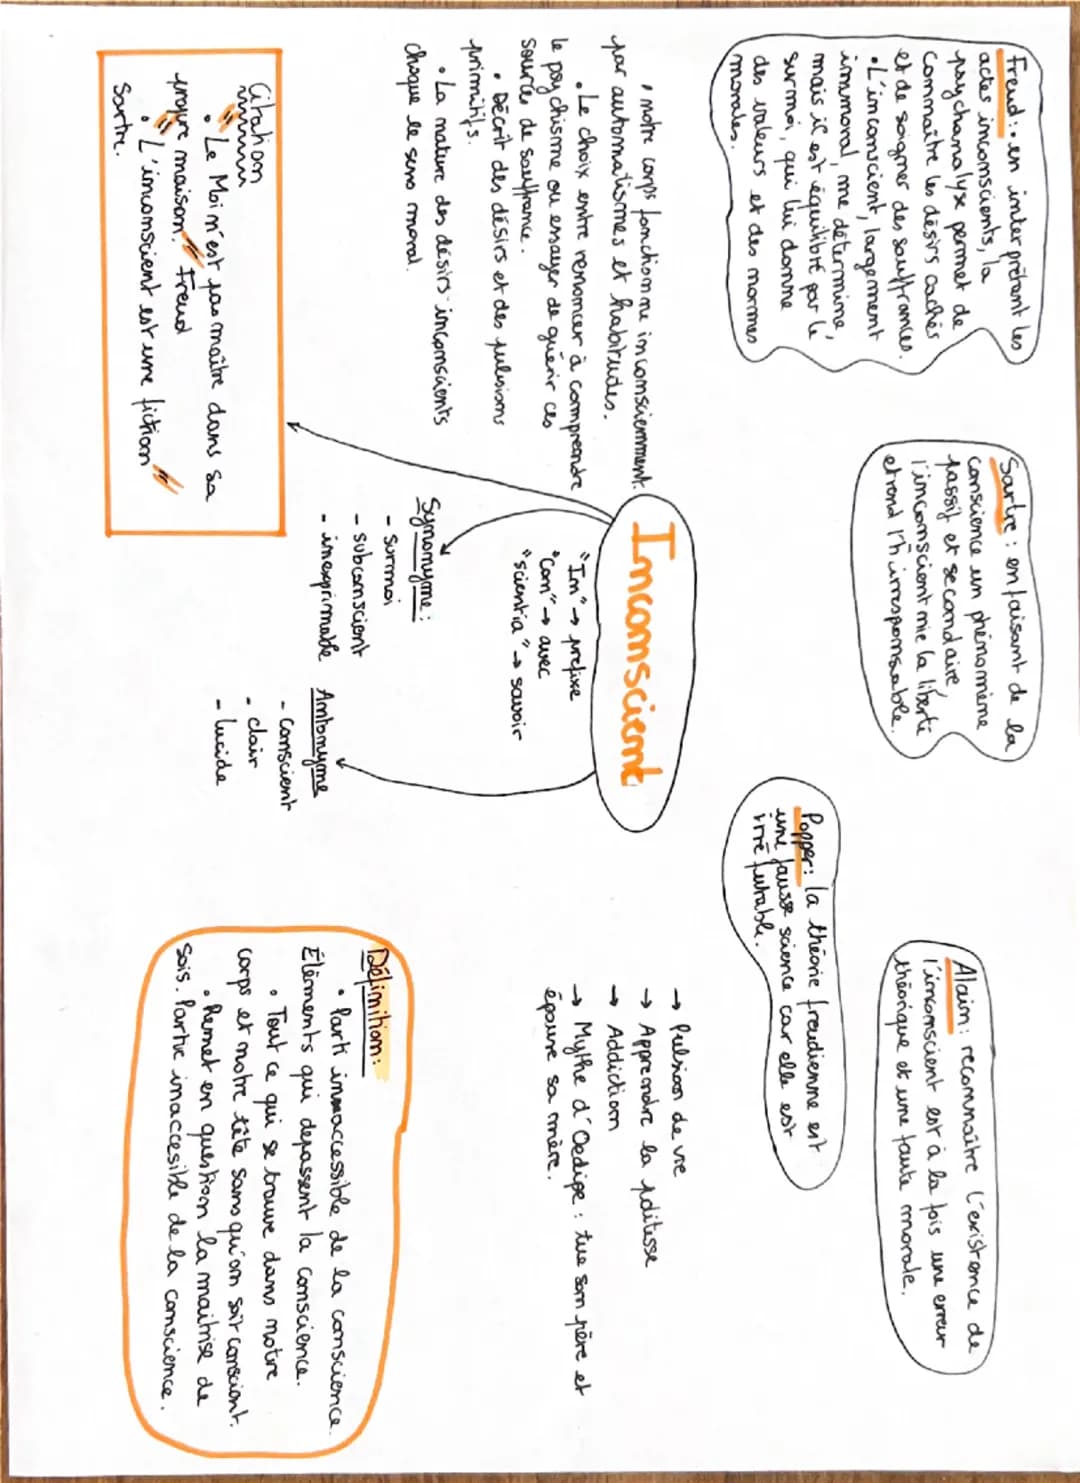 Freud : • en interprétant les
actes inconscients, la
psychanalyse permet de
connaître les désirs cachés
et de soigner des souffrances.
• L'inconscient, largement
immoral, me détermine,
mais il est équilibré par le
surmoi, qui lui donne
des valeurs et des normes
morales.
Sartre : en faisant de la
conscience un phénomène
passif et secondaire,
l'inconscient nie la liberté
et rend l'h irresponsable.
Alain : reconnaître l'existence de
l'inconscient est à la fois une erreur
théorique et une faute morale.
Popper : la théorie freudienne est
une fausse science car elle est
irréfutable.
• notre corps fonctionne inconsciemment
par automatismes et habitudes.
• Le choix entre renoncer à comprendre
le psychisme ou essayer de guérir ces
sources de souffrance.
• Décrit des désirs et des pulsions
primitifs.
• La nature des désirs inconscients
choque le sens moral.
Inconscient
"In" → prefixe
"Con" → avec
"scientia" → savoir
→ Pulsion de vie
→ Apprendre la politesse
→ Addiction
→ Mythe d'Oedipe : tue son père et
épouse sa mère.
Synonyme :
- surmoi
- subconscient
- inexprimable
Antonyme
- conscient
- clair
- lucide
Citation
" • Le Moi n'est pas maître dans sa
propre maison. " Freud
" • L'inconscient est une fiction "
Sartre.
Définition :
• Parti innaccessible de la conscience.
Éléments qui depassent la conscience.
• Tout ce qui se trouve dans notre
corps et notre tête sans qu'on soit conscient.
• Remet en question la maitrise de
sois. Partie inaccesible de la conscience.